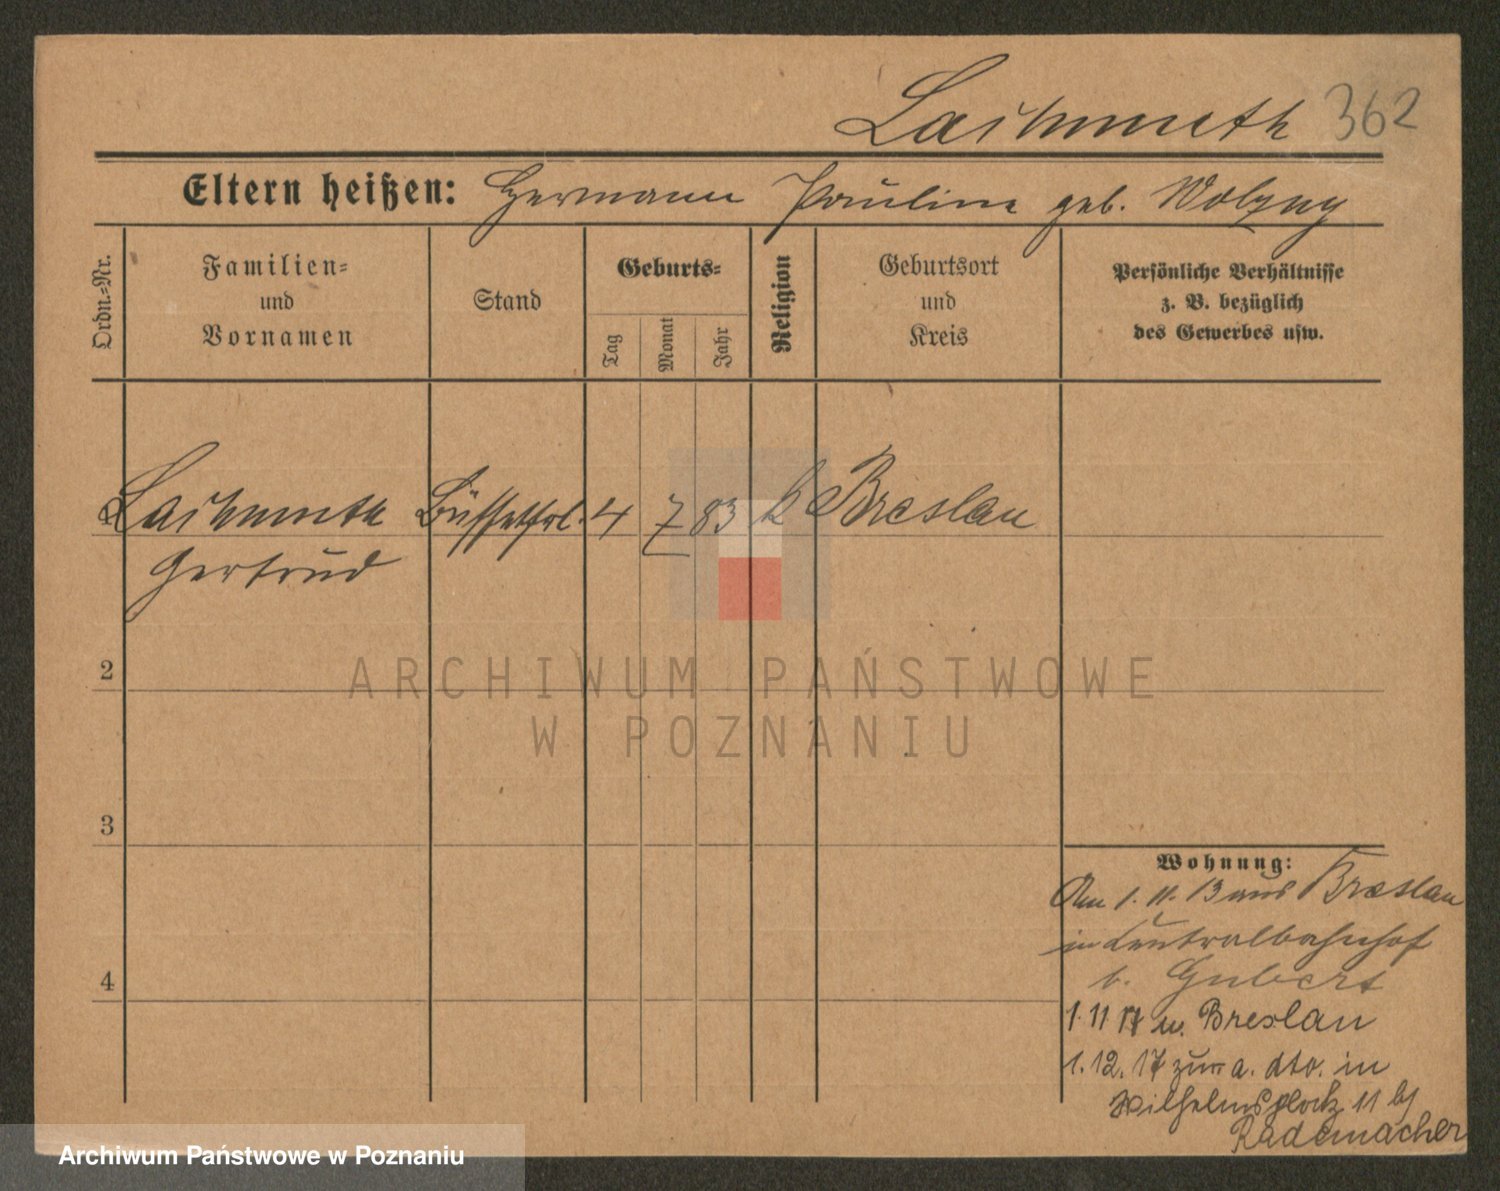 Lachmuth 362
Eltern heißen: Hermann Pauline geb. Wolzny
Ordn.=Nr.
Familien=
und
Vornamen
Stand
Geburts=
Tag
Monat
Jahr
Religion
Geburtsort
und
Kreis
Persönliche Verhältnisse
z. B. bezüglich
des Gewerbes usw.
Lachmuth Büffetfrl. 4 7 83 k Breslau
Gertrud
2
3
4
Wohnung:
Am 1. 11. 13 aus Breslau
in Centralbahnhof
b. Gubert
1.11 17 n. Breslau
1.12.17 zur. a. dto. in
Wilhelmsplatz 11 bj
Rademacher
ARCHIWUM PAŃSTWOWE
W POZNANIU
Archiwum Państwowe w Poznaniu